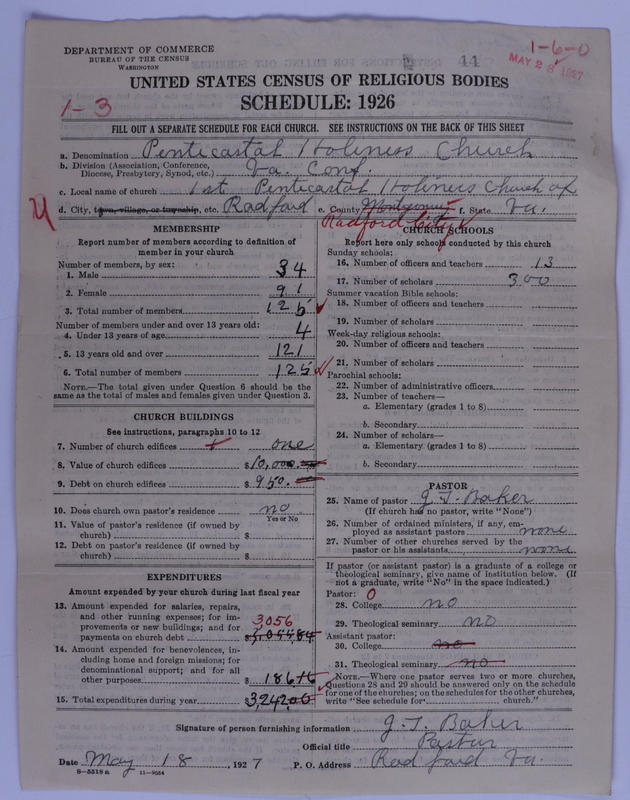 DEPARTMENT OF COMMERCE
BUREAU OF THE CENSUS
WASHINGTON
44
1-6-0
MAY 28 1927
UNITED STATES CENSUS OF RELIGIOUS BODIES
1-3
SCHEDULE: 1926
FILL OUT A SEPARATE SCHEDULE FOR EACH CHURCH. SEE INSTRUCTIONS ON THE BACK OF THIS SHEET
a. Denomination Penticastal Holiness Church
b. Division (Association, Conference, Diocese, Presbytery, Synod, etc.) Va. Conf.
c. Local name of church 1st Penticastal Holiness Church of
d. City, town, village, or township, etc. Radford e. County Montgomery f. State Va.
Radford City
MEMBERSHIP
Report number of members according to definition of
member in your church
Number of members, by sex:
1. Male 34
2. Female 91
3. Total number of members 125
Number of members under and over 13 years old:
4. Under 13 years of age 4
5. 13 years old and over 121
6. Total number of members 125
NOTE.—The total given under Question 6 should be the
same as the total of males and females given under Question 3.
CHURCH BUILDINGS
See instructions, paragraphs 10 to 12
7. Number of church edifices one
8. Value of church edifices $10,000.
9. Debt on church edifices $950.
10. Does church own pastor's residence? no
Yes or No
11. Value of pastor's residence (if owned by
church) $
12. Debt on pastor's residence (if owned by
church) $
EXPENDITURES
Amount expended by your church during last fiscal year
13. Amount expended for salaries, repairs,
and other running expenses; for im-
provements or new buildings; and for 3,056
payments on church debt $
14. Amount expended for benevolences, in-
cluding home and foreign missions; for
denominational support; and for all
other purposes $ 186.16
15. Total expenditures during year $3,242.00
CHURCH SCHOOLS
Report here only schools conducted by this church
Sunday schools:
16. Number of officers and teachers 13
17. Number of scholars 300
Summer vacation Bible schools:
18. Number of officers and teachers
19. Number of scholars
Week-day religious schools:
20. Number of officers and teachers
21. Number of scholars
Parochial schools:
22. Number of administrative officers
23. Number of teachers—
a. Elementary (grades 1 to 8)
b. Secondary
24. Number of scholars—
a. Elementary (grades 1 to 8)
b. Secondary
PASTOR
25. Name of pastor J. T. Baker
(If church has no pastor, write "None")
26. Number of ordained ministers, if any, em-
ployed as assistant pastors none
27. Number of other churches served by the
pastor or his assistants none
If pastor (or assistant pastor) is a graduate of a college or
theological seminary, give name of institution below. (If
not a graduate, write "No" in the space indicated.)
Pastor: 0
28. College no
29. Theological seminary no
Assistant pastor:
30. College no
31. Theological seminary no
NOTE.—Where one pastor serves two or more churches,
Questions 28 and 29 should be answered only on the schedule
for one of the churches; on the schedules for the other churches,
write "See schedule for church."
Signature of person furnishing information J. T. Baker
Official title Pastur
Date May 18, 1927 P. O. Address Radford Va.
8-5518 a 11-9554